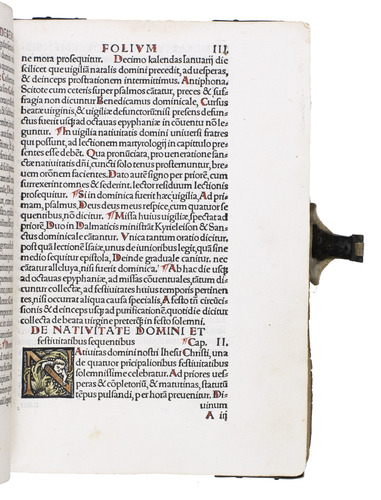 FOLIVM III
ne mora prosequitur. Decimo kalendas Ianuarij die
scilicet que uigiliā natalis domini precedit, ad uesperas,
& deinceps prostrationem intermittimus. Antiphona.
Scitote cum ceteris super psalmos cātatur, preces & suf-
fragia non dicuntur Benedicamus dominicale, Cursus
beatæ uirginis, & uigiliæ defunctorū nisi presens defun-
ctus fuerit usq̃ ad octauas epyphaniæ in cōuentu nō le-
guntur. In uigilia natiuitatis domini uniuersi fratres
qui possunt, ad lectionem martyrologij in capitulo pre-
sentes esse debēt. Qua pronūciata, pro ueneratione san-
ctæ natiuitatis dñi, cuncti solo tenus prosternuntur, breu-
em orōnem facientes. Dato autē signo per priorē, cum
surrexerint omnes & sederint, lector residuum lectionis
prosequitur. Si in dominica fuerit hæc uigilia, Ad pri-
mam, psalmus, Deus deus meus respice, cum quatuor se
quentibus, nō dicitur. Missa huius uigiliæ, spectat ad
priorē, Duo in Dalmaticis ministrāt Kyrieleison & San-
ctus dominicale cātantur. Vnica tantum oratio dicitur,
post quā lectionē Isaiæ, unus de iunioribus legit, quā sine
medio sequitur epistola, Deinde graduale canitur. nec
cātatur alleluya, nisi fuerit dominica. Ab hac die usq̃
ad octauas epyphaniæ, ad missas cōuentuales, rātum di
cuntur collectæ, ad festiuitates huius temporis pertinen
tes, nisi occurrat aliqua causa specialis, A festo tñ circūci
sionis & deinceps usq̃ ad purificationē. quotidie dicitur
collecta de beata uirgine preterq̃ in festo solemni.
DE NATIVITATE DOMINI ET
festiuitatibus sequentibus Cap. II.
NAtiuitas domini nostri Ihesu Christi, una
de quatuor pricipalioribus festiuitatibus
solemnissime celebratur. Ad priores ues-
peras & cōpletoriū, & matutinas, statutū
tēpus pulsandi, per horā preuenitur. Di
uinum
A iij